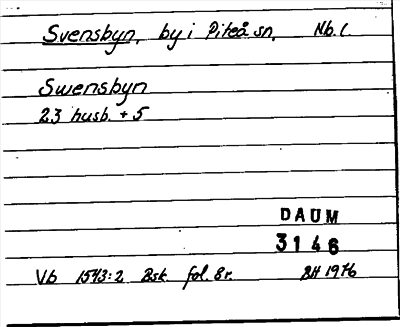 Svensbyn, by i Piteå sn. Nb. l.
Swensbyn
23 husb. + 5
DAUM
3146
Vb 1543:2 Bsk. fol. 8r. BH 1976